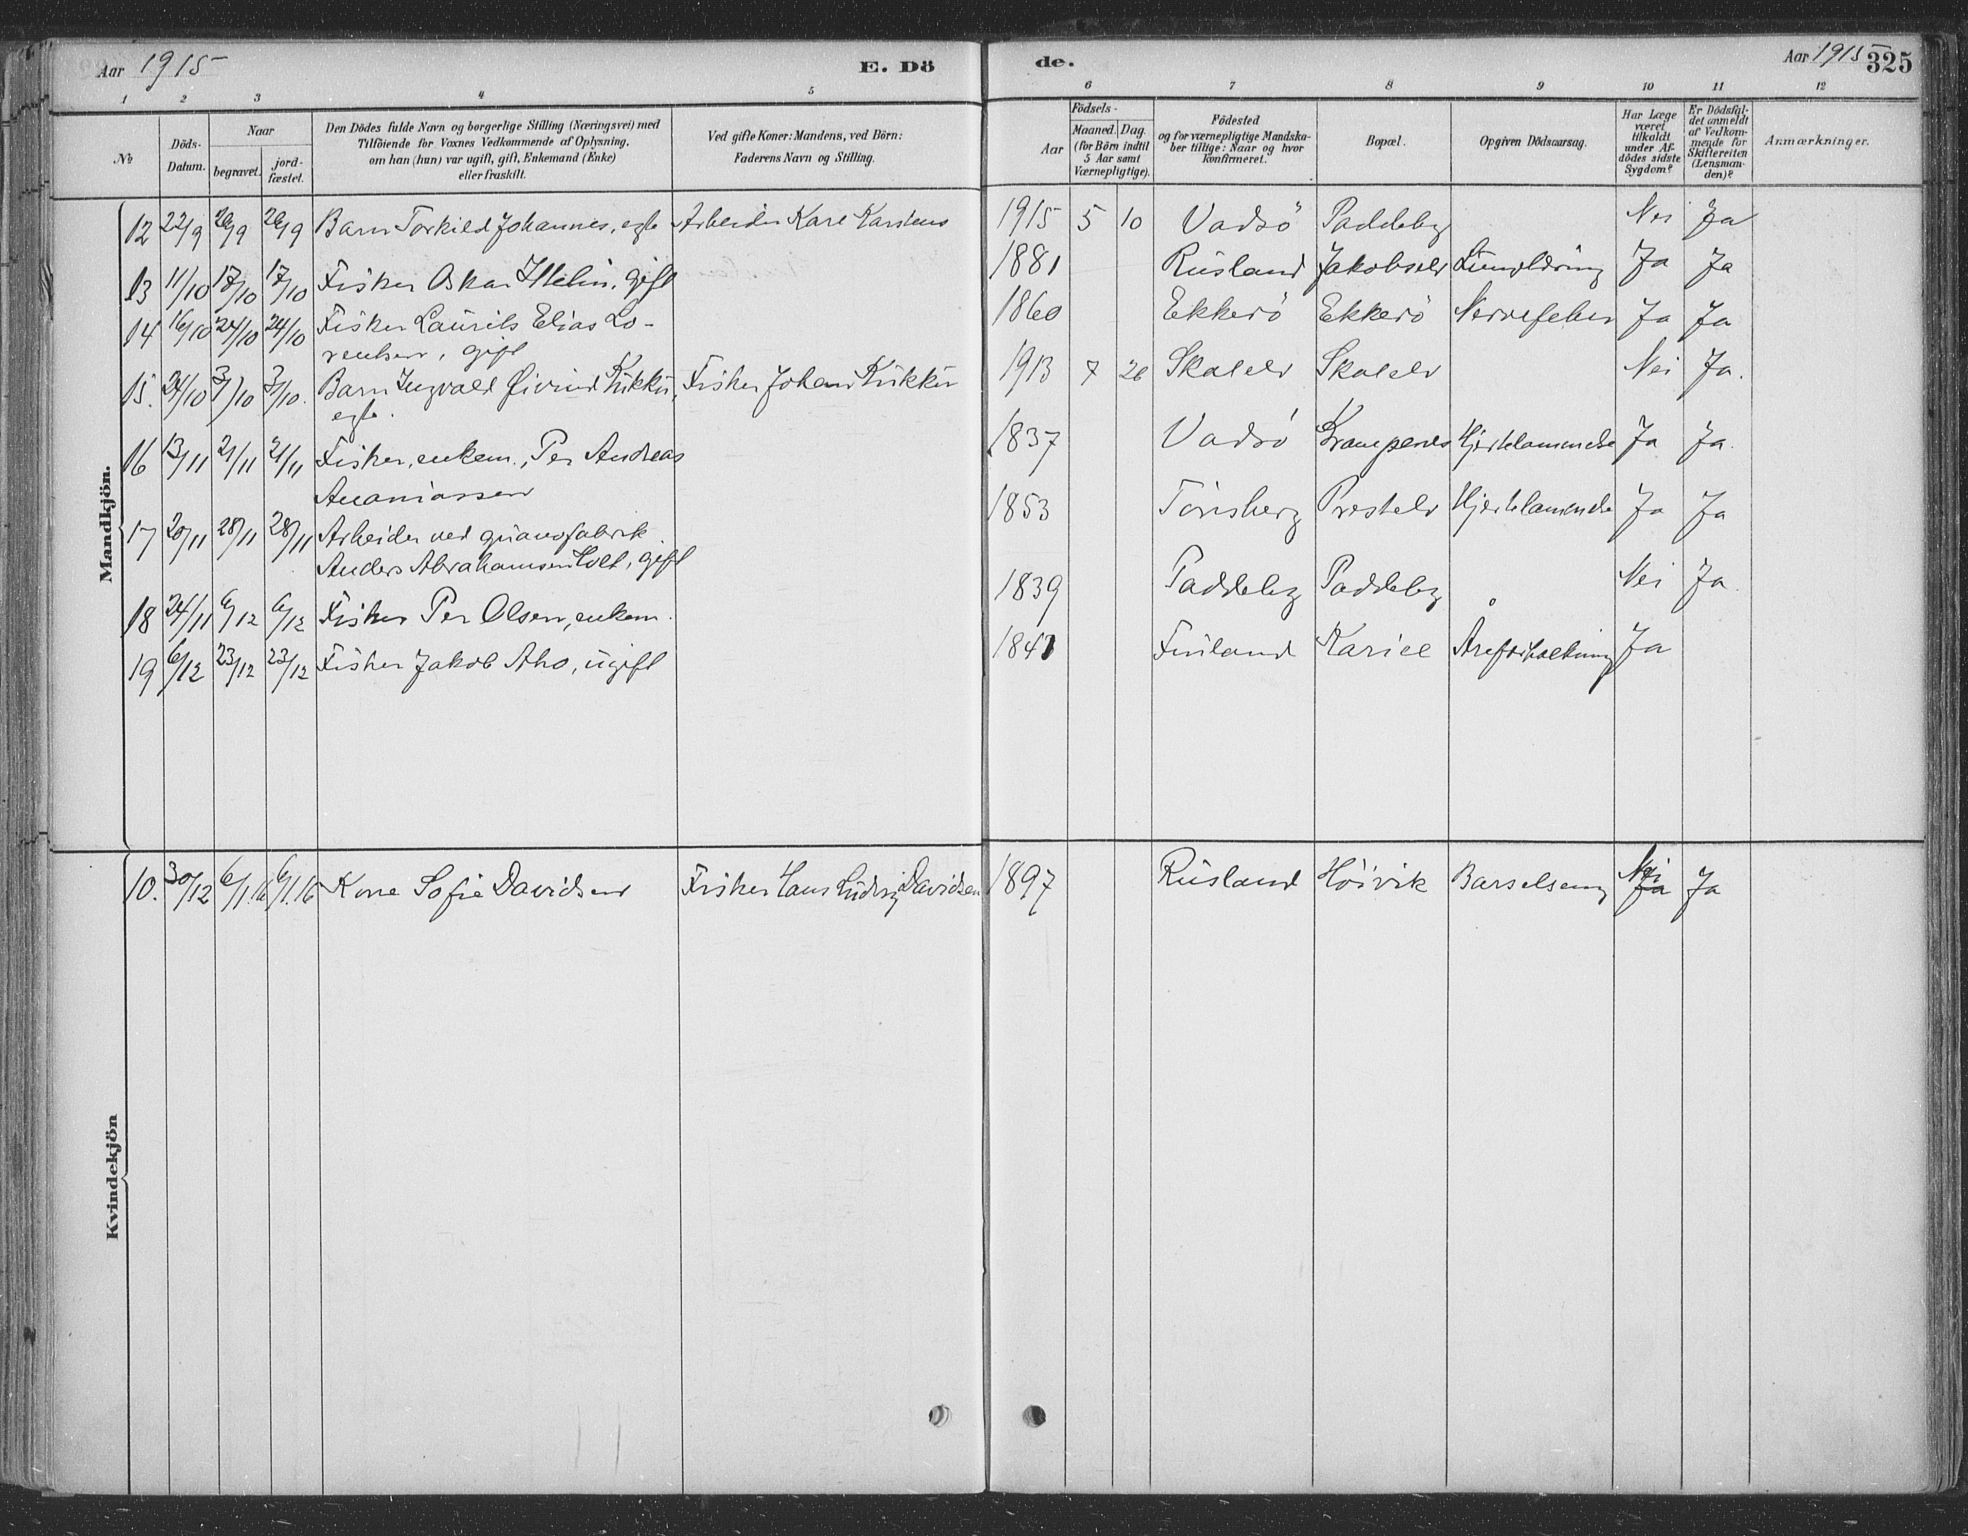 Aar 1915
E. Dö
de.
Aar 1915
325
1 2 3 4 5 6 7 8 9 10 11 12
No
Döds-
Datum.
Naar
begravet.
jord-
fæstet.
Den Dödes fulde Navn og borgerlige Stilling (Næringsvei) med
Tilföiende for Voxnes Vedkommende af Oplysning,
om han (hun) var ugift, gift, Enkemand (Enke)
eller fraskilt.
Ved gifte Koner: Mandens, ved Börn:
Faderens Navn og Stilling.
Födsels-
Aar
Maaned. Dag.
(for Börn indtil
5 Aar samt
Værnepligtige).
Födested
og for værnepligtige Mandska-
ber tillige: Naar og hvor
konfirmeret.
Bopæl.
Opgiven Dödsaarsag.
Har Læge
været
tilkaldt
under Af-
dödes sidste
Sygdom?
Er Dödsfal-
det anmeldt
af Vedkom-
mende for
Skifteretten
(Lensman-
den)?
Anmærkninger.
Mandkjön.
12 22/9 26/9 26/9 Barn Torkild Johannes, egte Arbeider Karl Karstens 1915 5 10 Vadsö Paddeby Nei Ja
13 11/10 17/10 17/10 Fisker Oskar, gift 1881 Rusland Jakobselv Ja Ja
14 16/10 24/10 24/10 Fisker Laurits Elias Lo- 1860 Ekkerö Ekkerö Nervefeber Ja Ja
rentsen, gift
15. 24/10 3/10 3/10. Barn Ingvald Øivind Kukku, Fisker Johan Kukku 1913 7 26 Skalelv Skalelv Nei Ja.
egte.
16 13/11 21/11 21/11 Fisker, enkem., Per Andreas 1837 Vadsö Krampenes Hjertelammelse Ja Ja.
Ananiassen
17 20/11 28/11 28/11 Arbeider ved guanofabrik. 1853 Tönsberg Prestelv Hjertelammelse Ja Ja
Anders Abrahamsen Holt, gift
18 24/11 6/12 6/12 Fisker Per Olsen, enkem. 1839 Paddeby Paddeby Nei Ja.
19 6/12 23/12 23/12 Fisker Jakob Aho, ugift 1841 Finland Kariel Åreforkalkning Ja
Kvindekjön
10. 30/12 6/1.16 6/1.16 Kone Sofie Davidsen Fisker Hans Ludvig Davidsen 1897 Rusland Höivik Barselseng Nei Ja Ja